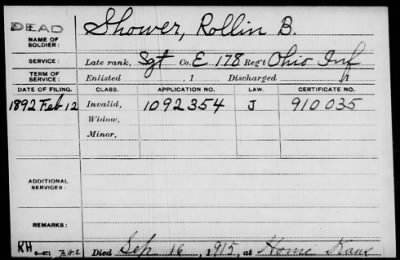 DEAD
NAME OF SOLDIER: Shower, Rollin B.
SERVICE: Late rank, Sgt Co. E 178 Reg't Ohio Inf
TERM OF SERVICE: Enlisted , 1 Discharged , 1
DATE OF FILING. CLASS. APPLICATION NO. LAW. CERTIFICATE NO.
1892 Feb 12 Invalid, 1092354 J 910035
Widow,
Minor,
ADDITIONAL SERVICES:
REMARKS:
KH Died Sep 16, 1915, at Home Kans